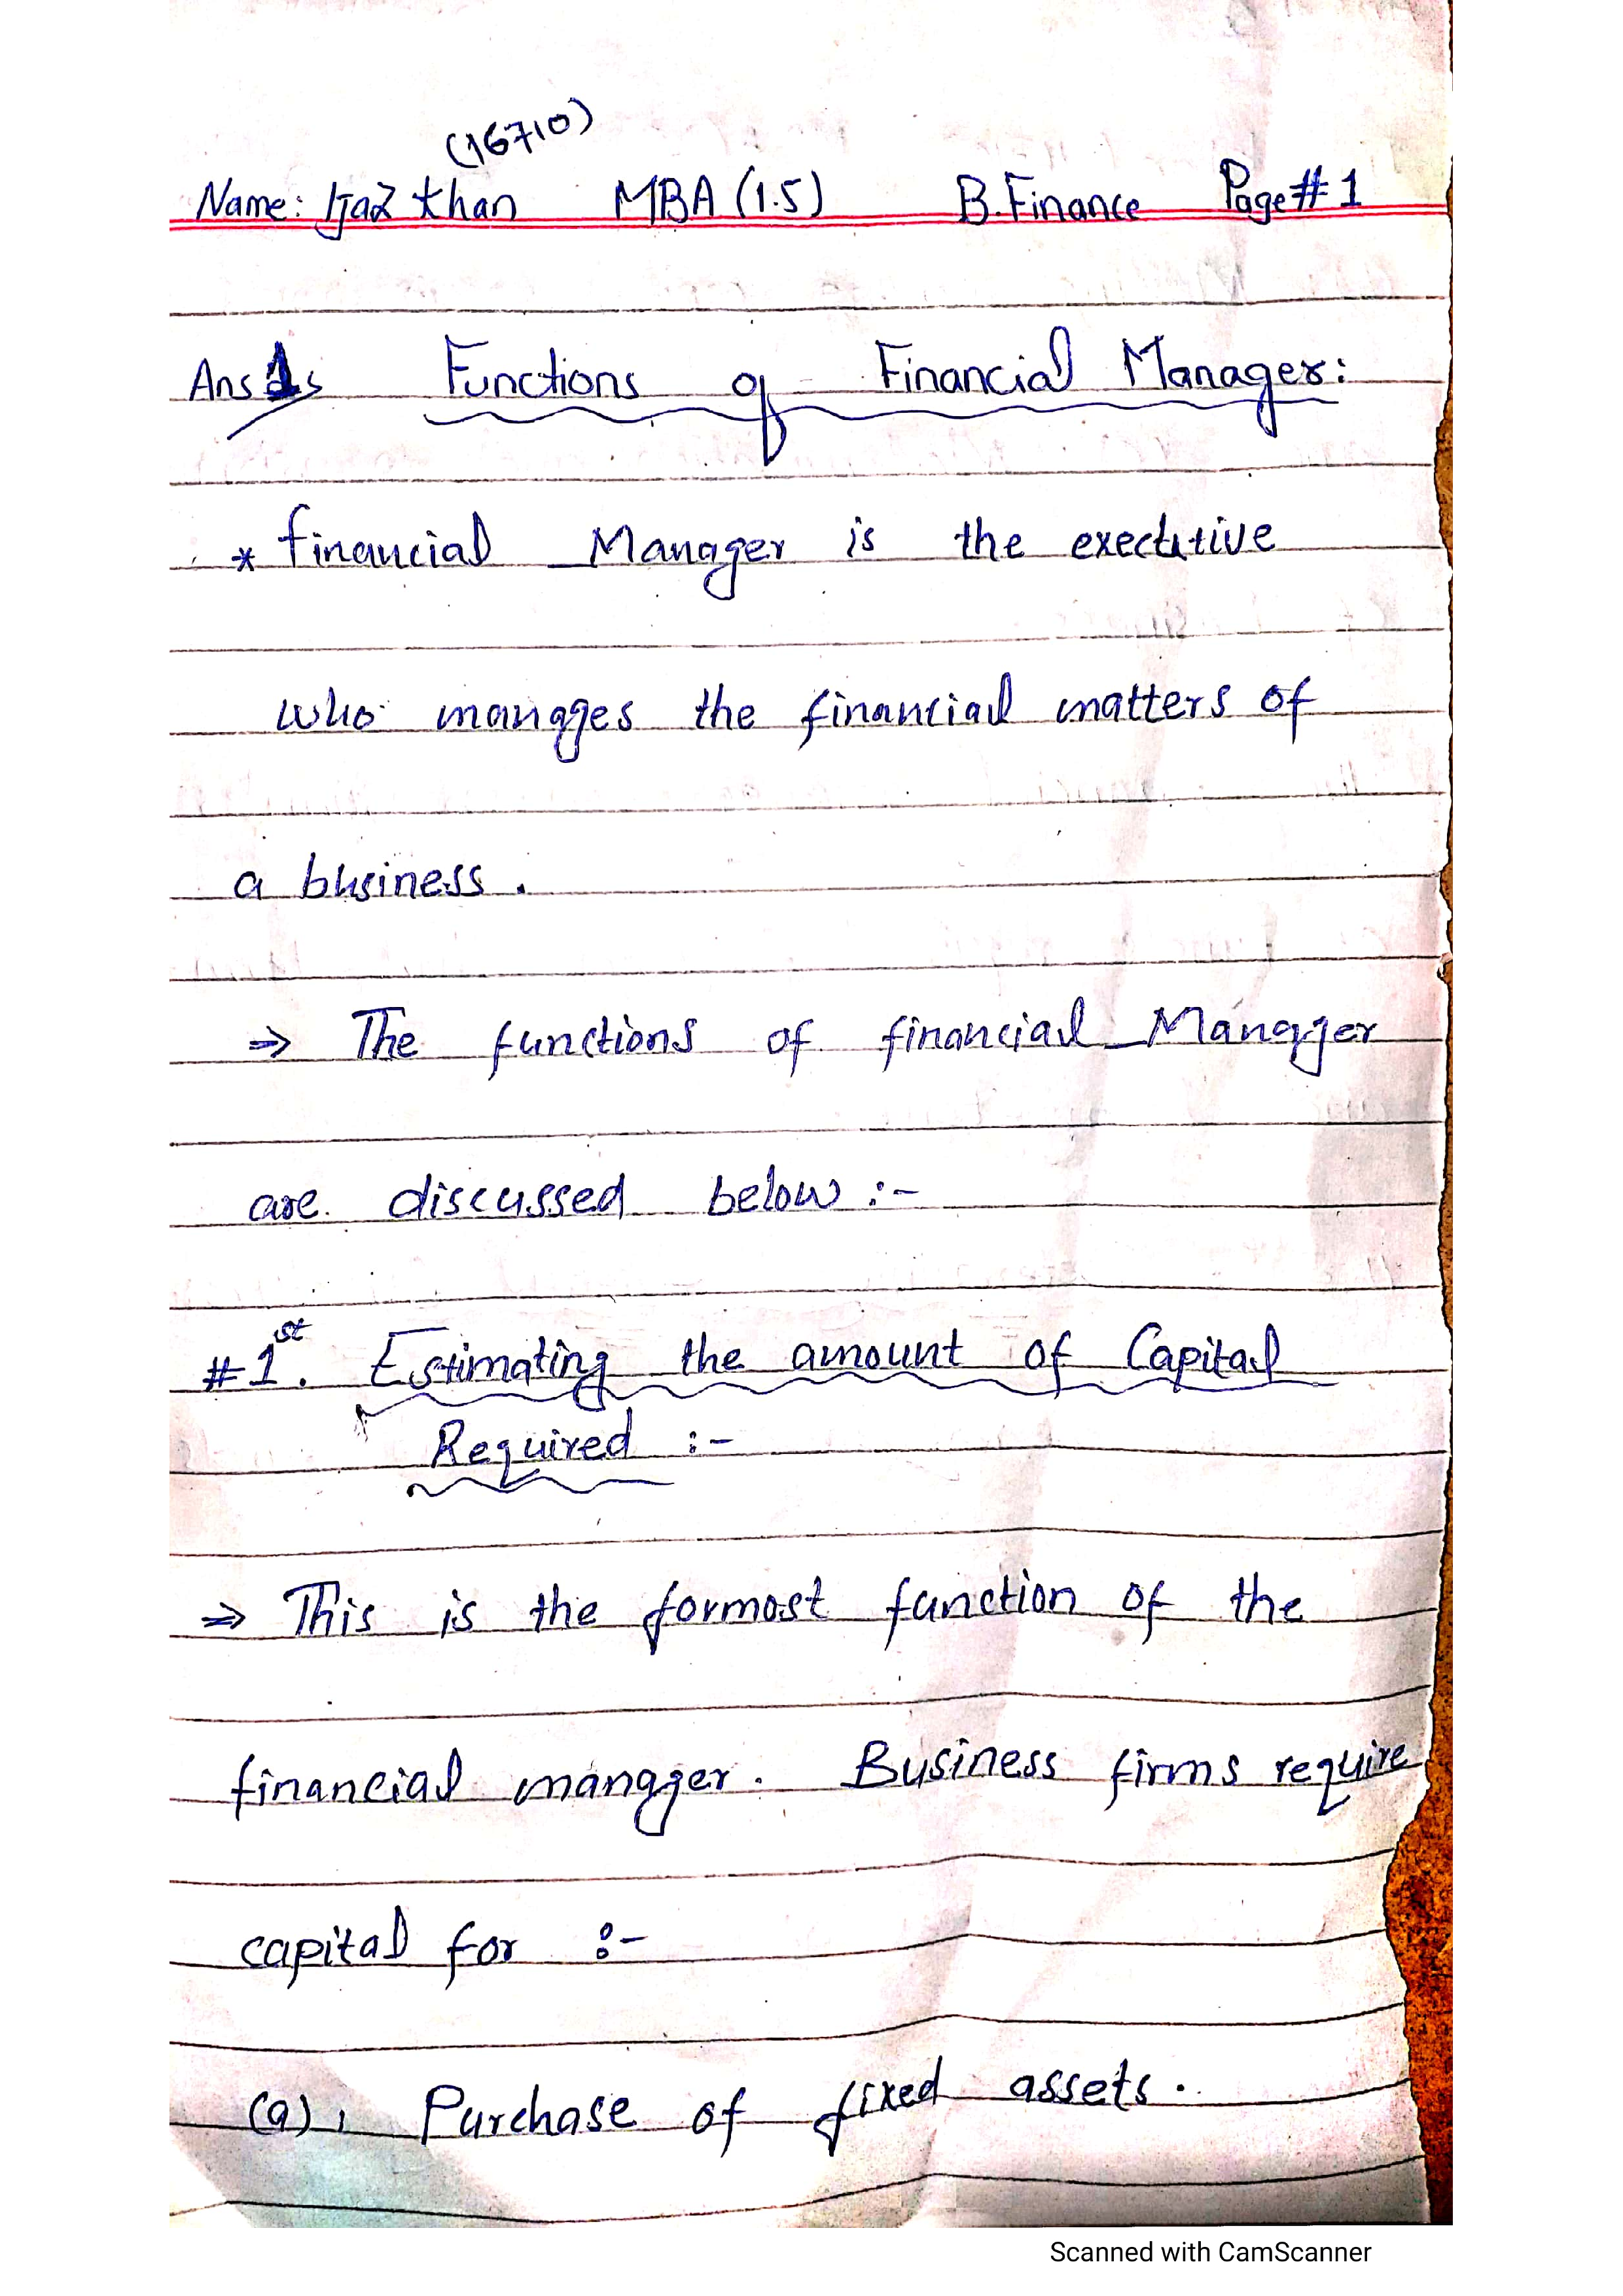 (16710)
Name: Ijaz khan MBA (1.5) B.Finance Page# 1
Ans 1s Functions of Financial Manager:
* financial Manager is the executive
who manages the financial matters of
a business.
⇒ The functions of financial Manager
are discussed below :-
#1st. Estimating the amount of Capital
Required :-
⇒ This is the formost function of the
financial manager. Business firms require
capital for :-
(a), Purchase of fixed assets.
Scanned with CamScanner